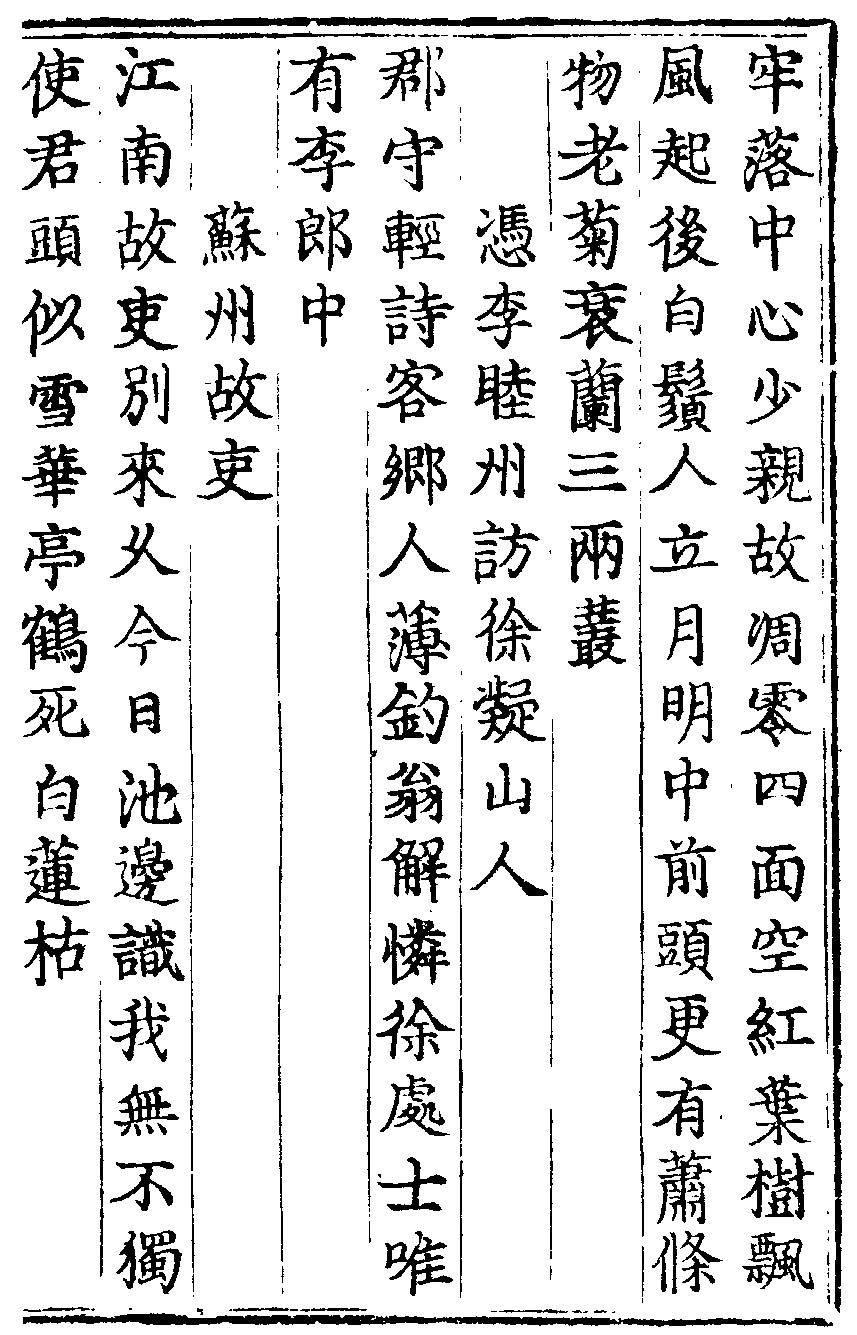 牢落中心少親故凋零四面空紅葉樹飄
風起後白鬚人立月明中前頭更有蕭條
物老菊衰蘭三兩叢
憑李睦州訪徐凝山人
郡守輕詩客鄉人薄釣翁解憐徐處士唯
有李郎中
蘇州故吏
江南故吏別來久今日池邊識我無不獨
使君頭似雪華亭鶴死白蓮枯